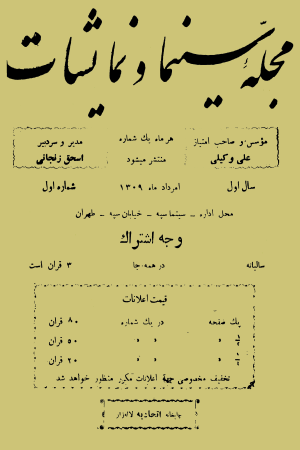 مجله سینما و نمایشات
مؤسس و صاحب امتیاز
علی وکیلی
هر ماه یك شماره
منتشر میشود
مدیر و سردبیر
اسحق زنجانی
سال اول
امرداد ماه ۱۳۰۹
شماره اول
محل اداره - سینما سپه - خیابان سپه - طهران
وجه اشتراك
سالیانه در همه جا ۳ قران است
قیمت اعلانات
یك صفحه در یك شماره ۸۰ قران
۵۰ قران
۲۰ قران
تخفیف مخصوصی جهة اعلانات مکرر منظور خواهد شد
چاپخانه اتحادیه لاله‌زار